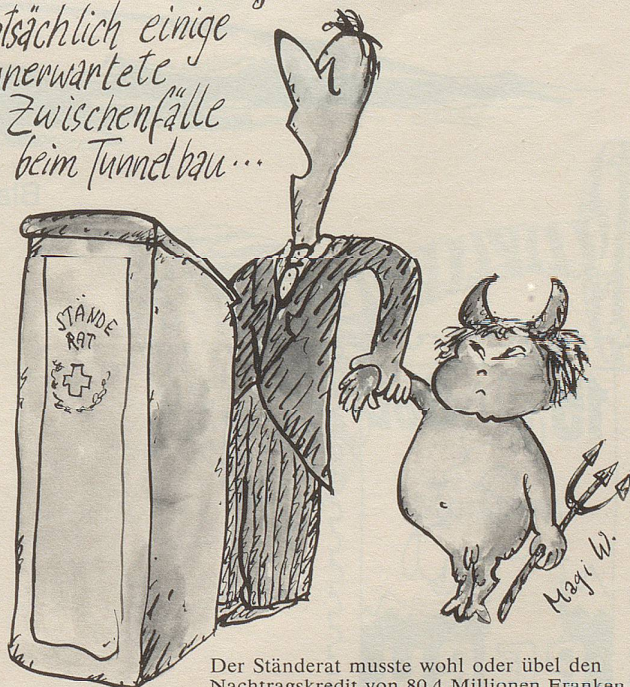 einige
Zwischenfälle
beim Tunnelbau...
STÄNDE
RAT
Magi W.
Der Ständerat musste wohl oder übel den
Nachtragskredit von 80,4 Millionen Franken